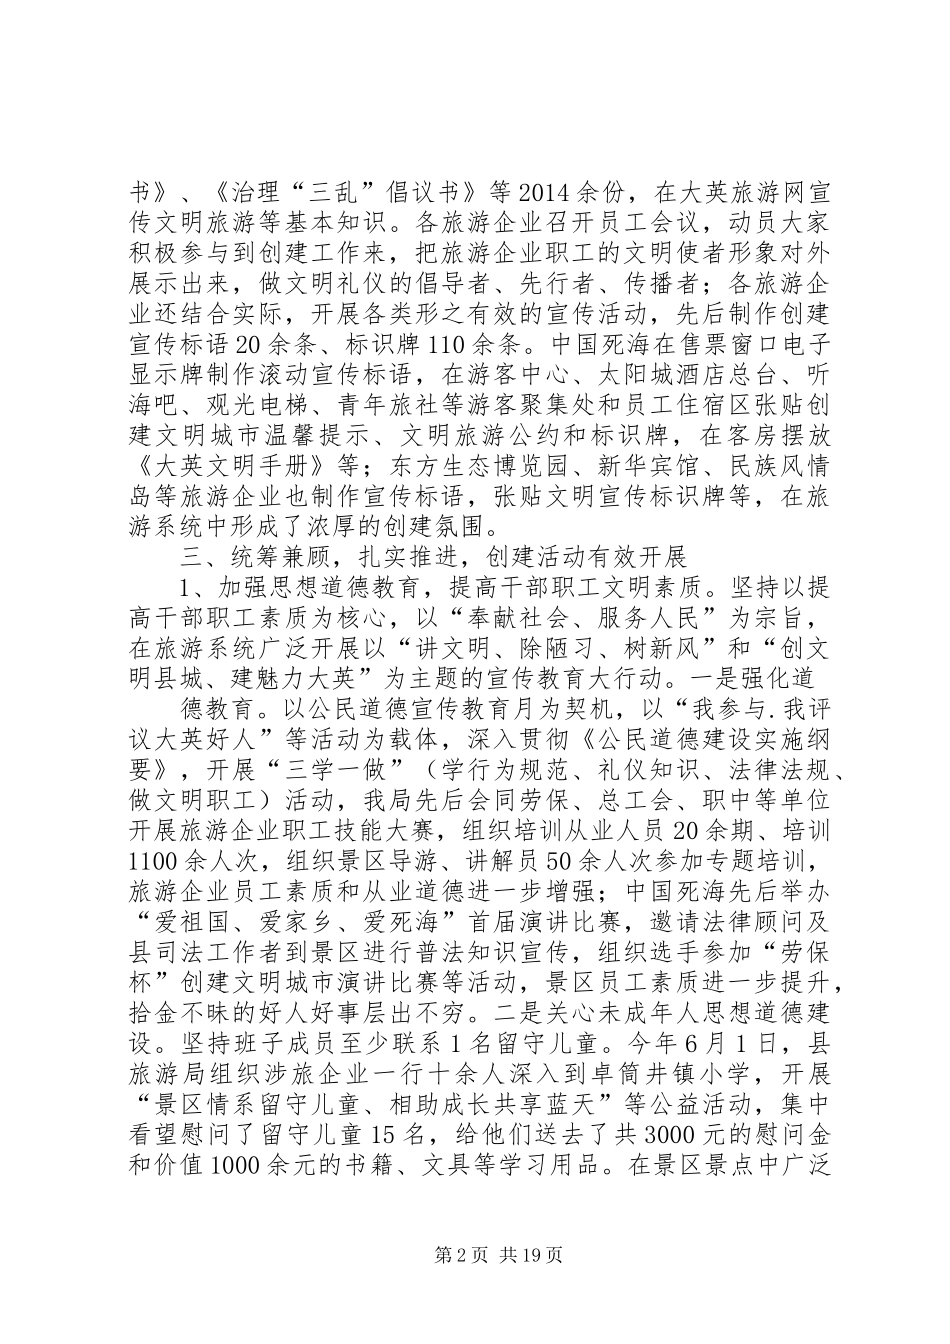 书》、《治理“三乱”倡议书》等2014余份，在大英旅游网宣
传文明旅游等基本知识。各旅游企业召开员工会议，动员大家
积极参与到创建工作来，把旅游企业职工的文明使者形象对外
展示出来，做文明礼仪的倡导者、先行者、传播者；各旅游企
业还结合实际，开展各类形之有效的宣传活动，先后制作创建
宣传标语20余条、标识牌110余条。中国死海在售票窗口电子
显示牌制作滚动宣传标语，在游客中心、太阳城酒店总台、听
海吧、观光电梯、青年旅社等游客聚集处和员工住宿区张贴创
建文明城市温馨提示、文明旅游公约和标识牌，在客房摆放
《大英文明手册》等；东方生态博览园、新华宾馆、民族风情
岛等旅游企业也制作宣传标语，张贴文明宣传标识牌等，在旅
游系统中形成了浓厚的创建氛围。
三、统筹兼顾，扎实推进，创建活动有效开展
1、加强思想道德教育，提高干部职工文明素质。坚持以提
高干部职工素质为核心，以“奉献社会、服务人民”为宗旨，
在旅游系统广泛开展以“讲文明、除陋习、树新风”和“创文
明县城、建魅力大英”为主题的宣传教育大行动。一是强化道
德教育。以公民道德宣传教育月为契机，以“我参与.我评
议大英好人”等活动为载体，深入贯彻《公民道德建设实施纲
要》，开展“三学一做”（学行为规范、礼仪知识、法律法规、
做文明职工）活动，我局先后会同劳保、总工会、职中等单位
开展旅游企业职工技能大赛，组织培训从业人员20余期、培训
1100余人次，组织景区导游、讲解员50余人次参加专题培训，
旅游企业员工素质和从业道德进一步增强；中国死海先后举办
“爱祖国、爱家乡、爱死海”首届演讲比赛，邀请法律顾问及
县司法工作者到景区进行普法知识宣传，组织选手参加“劳保
杯”创建文明城市演讲比赛等活动，景区员工素质进一步提升，
拾金不昧的好人好事层出不穷。二是关心未成年人思想道德建
设。坚持班子成员至少联系1名留守儿童。今年6月1日，县
旅游局组织涉旅企业一行十余人深入到卓筒井镇小学，开展
“景区情系留守儿童、相助成长共享蓝天”等公益活动，集中
看望慰问了留守儿童15名，给他们送去了共3000元的慰问金
和价值1000余元的书籍、文具等学习用品。在景区景点中广泛
第2页 共19页